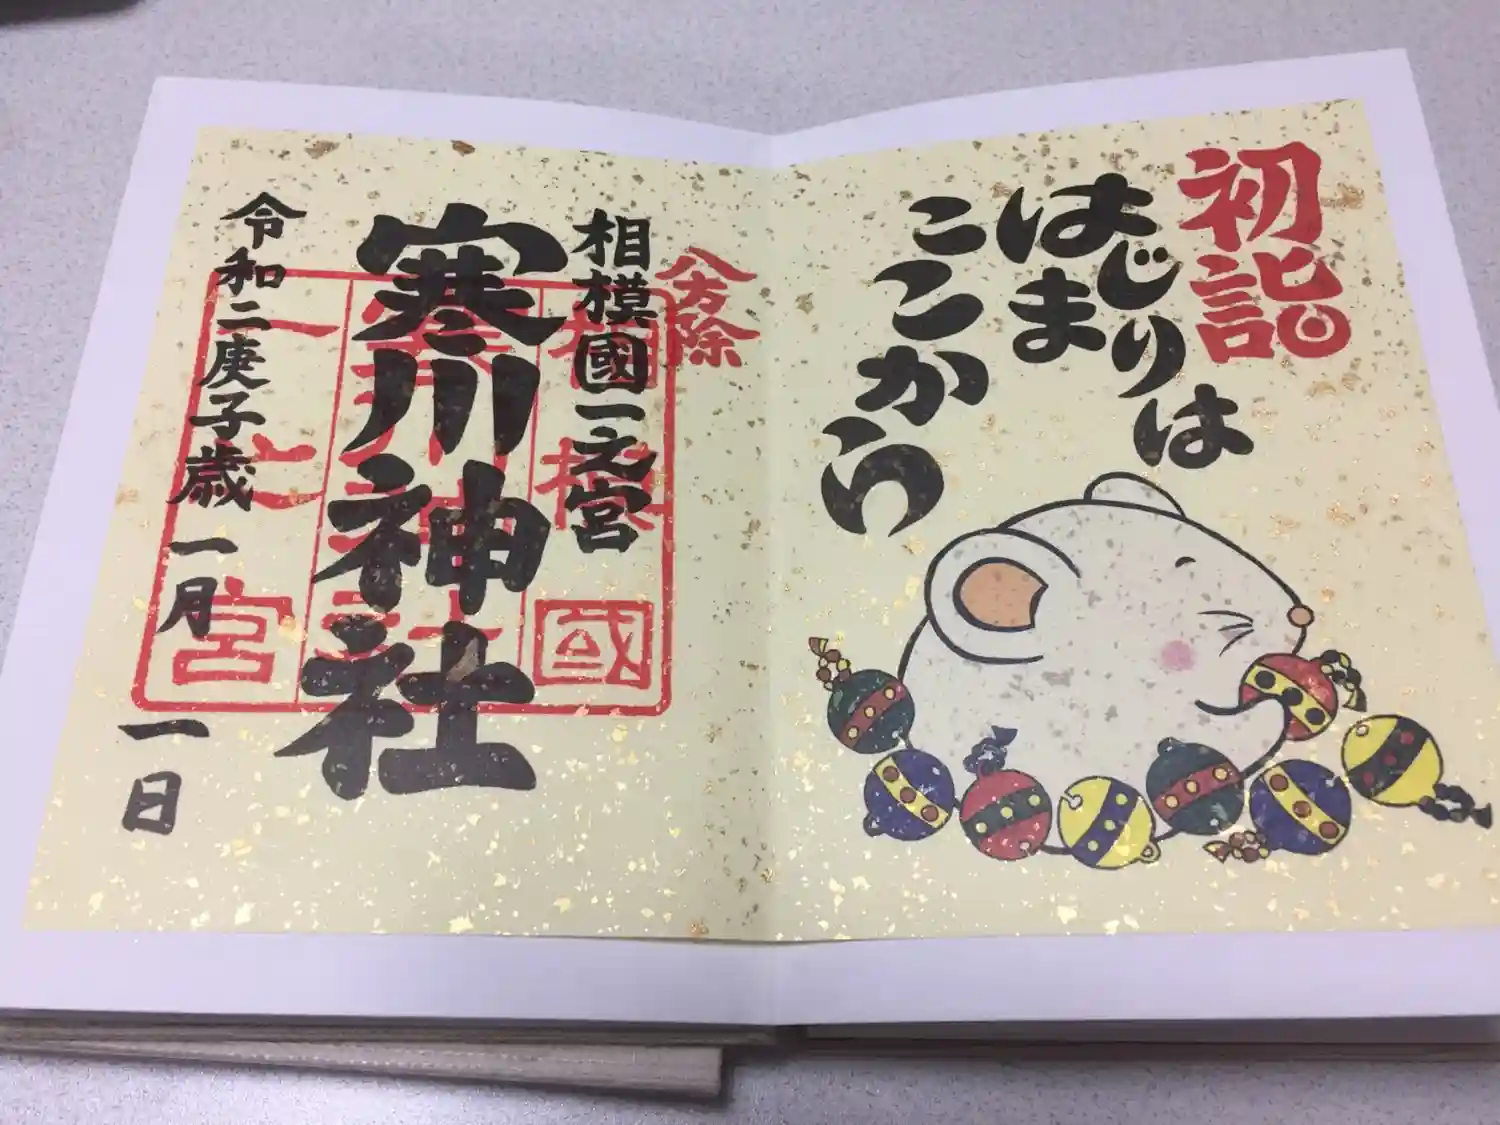 初詣
はじまりは
ここから
八方除
相模國一之宮
寒川神社
令和二庚子歳 一月一日
相模國
寒川神社
一之宮